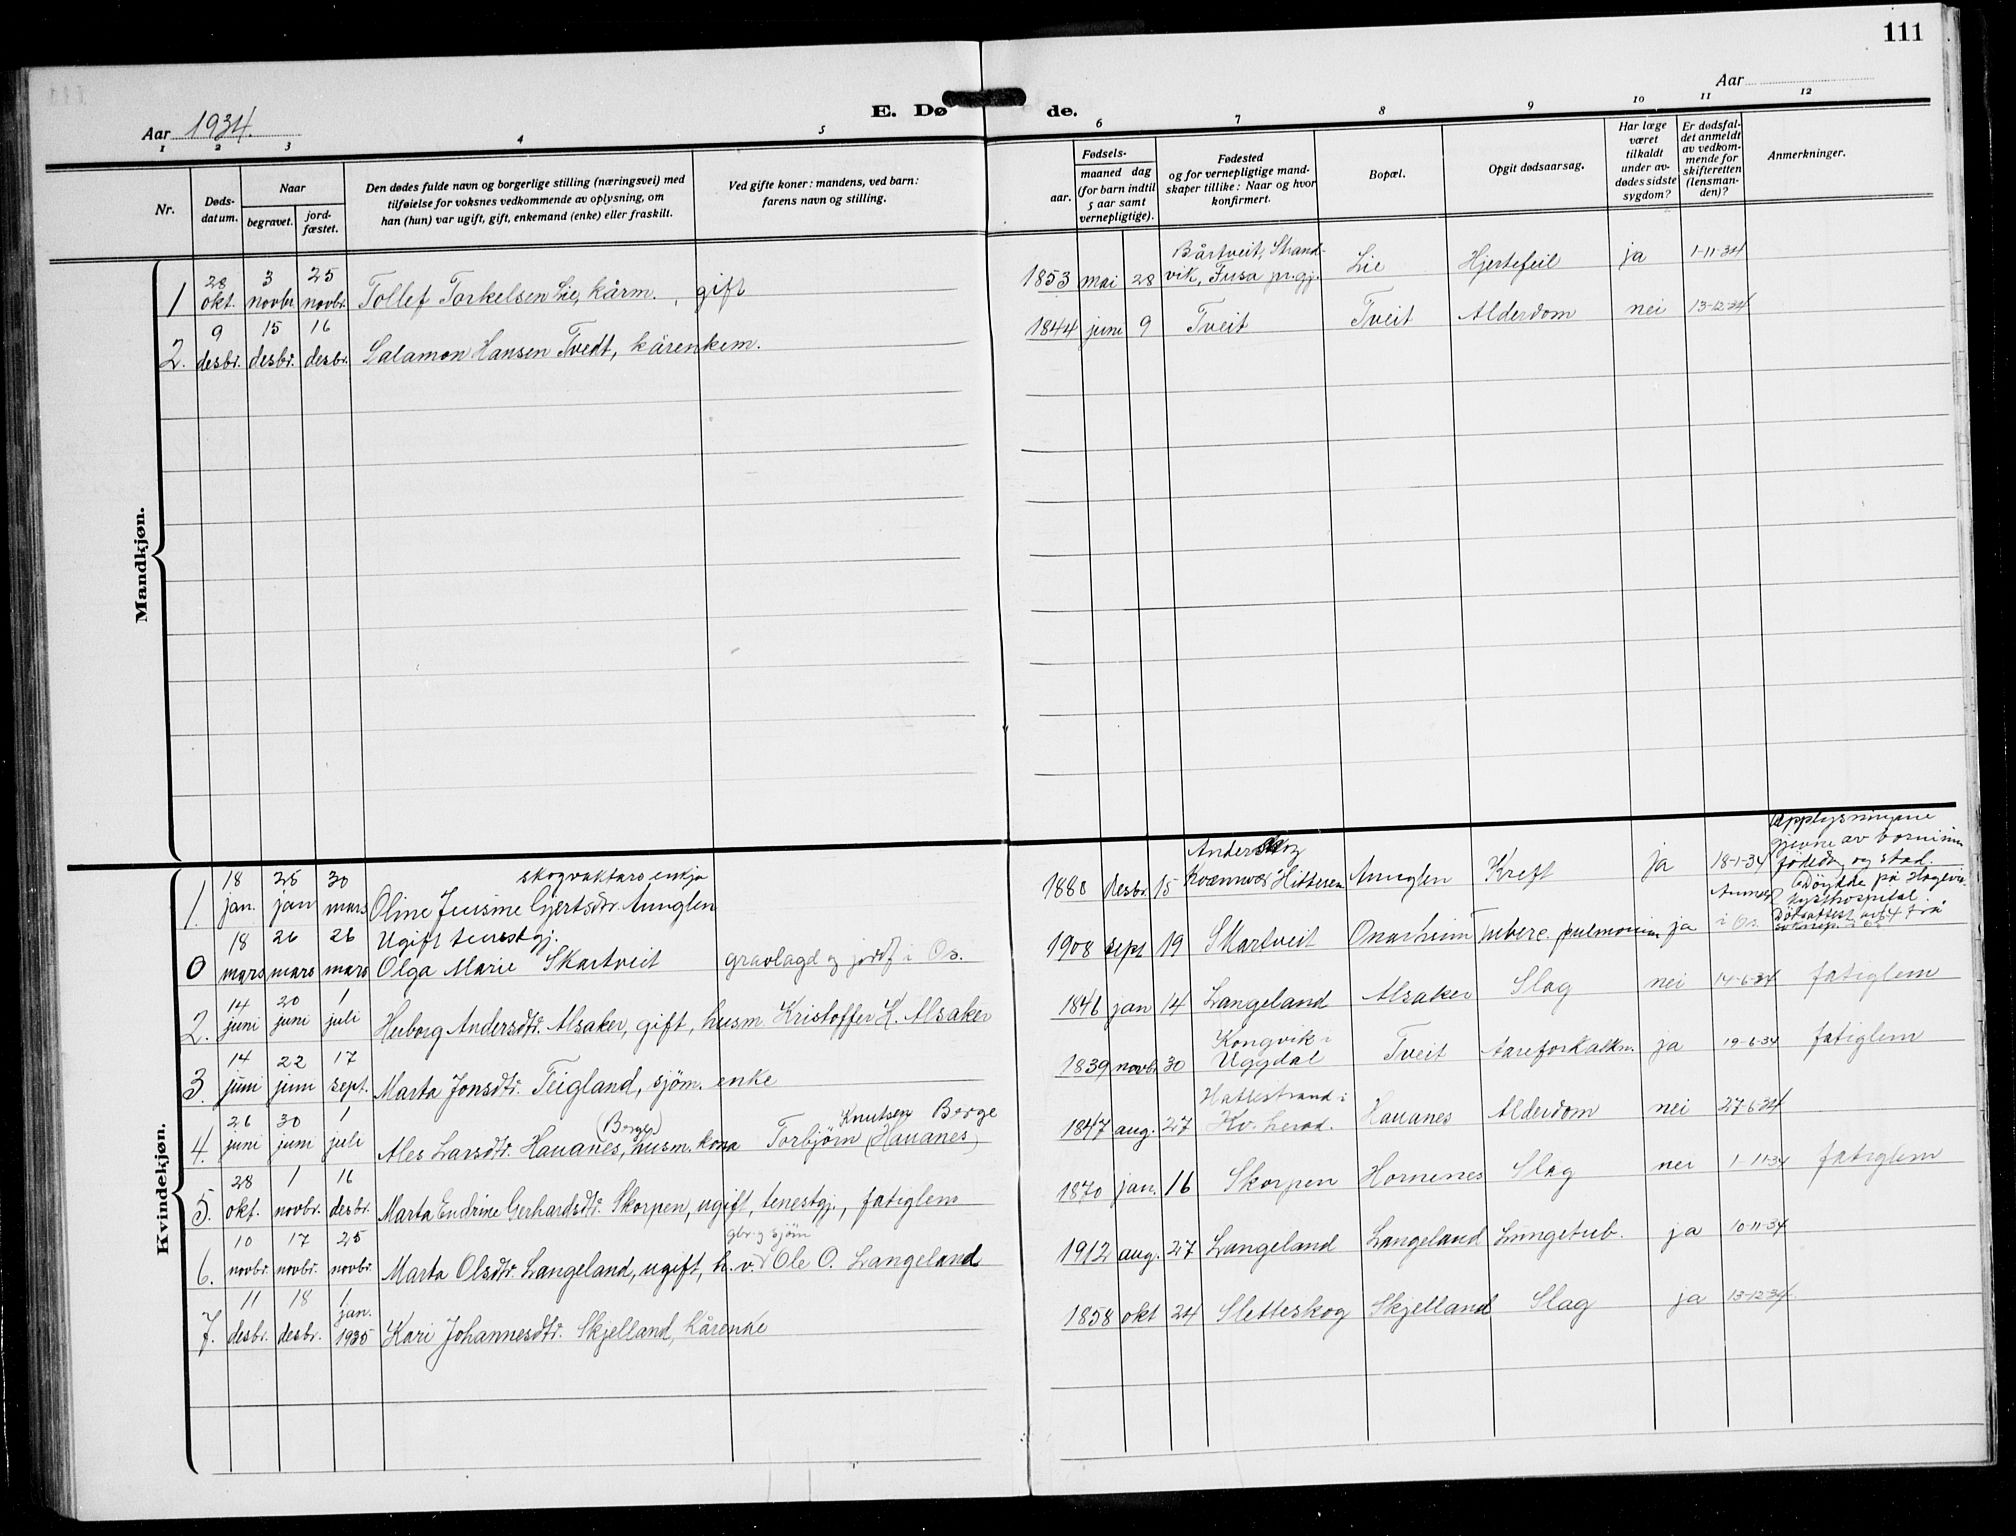 111
Aar 1934.
E. Dø de.
Aar
1 2 3 4 5 6 7 8 9 10 11 12
Nr.
Døds-
datum.
Naar
begravet.
jord-
fæstet.
Den dødes fulde navn og borgerlige stilling (næringsvei) med
tilføielse for voksnes vedkommende av oplysning, om
han (hun) var ugift, gift, enkemand (enke) eller fraskilt.
Ved gifte koner: mandens, ved barn:
farens navn og stilling.
Fødsels-
aar.
maaned dag
(for barn indtil
5 aar samt
vernepligtige).
Fødested
og for vernepligtige mand-
skaper tillike: Naar og hvor
konfirmert.
Bopæl.
Opgit dødsaarsag.
Har læge
været
tilkaldt
under av-
dødes sidste
sygdom?
Er dødsfal-
det anmeldt
av vedkom-
mende for
skifteretten
(lensman-
den)?
Anmerkninger.
Mandkjøn.
1 28 okt. 3 novbr. 25 novbr. Tollef Torkelsen Lie, kårm., gift 1853 mai 28 Bårtveit, Strand-
vik, Fusa pr.gj. Lie Hjertefeil ja 1-11-34
2. 9 desbr. 15 desbr. 16 desbr. Salamon Hansen Tvedt, kårenkem. 1844 juni 9 Tveit Tveit Alderdom nei 13-12-34
Kvindekjøn.
1. 18 jan. 26 jan 30 mars skogvaktars enkja
Oline Gjertsdtr. Anuglen 1880 desbr. 15 Hitteren Anuglen Kreft ja 18-1-34 Upplysningane
gjevne av
fødeda. og stad.
0 18 mars 26 mars 26 mars Ugift tenestgj.
Olga Marie Skartveit gravlagd og jordf i Os. 1908 sept 19 Skartveit Onarheim Tuberc. pulmonum ja i Os. Døydde på Hagevik
kysthospital.
Dødsattest
2. 14 juni 20 juni 1 juli Herborg Andersdtr. Alsaker, gift, husm. Kristoffer K. Alsaker 1846 jan 14 Langeland Alsaker Slag nei 14-6-34 fatiglem
3. 14 juni 22 juni 17 sept. Marta Jonsdtr. Teigland, sjøm. enke 1839 novbr. 30 Kongvik i
Uggdal Tveit Aareforkalkn. ja 19-6-34 fatiglem
4. 26 juni 30 juni 1 juli Ales Larsdtr. Hauanes, (Berge) husm. kona Torbjørn Knutsen Berge (Hauanes) 1847 aug. 27 Hattestrand i
Kv. herad. Hauanes Alderdom nei 27-6-34
5. 28 okt. 1 novbr. 16 desbr. Marta Endrine Gerhardsdtr. Skorpen, ugift, tenestgj., fatiglem 1870 jan. 16 Skorpen Hornenes Slag nei 1-11-34 fatiglem
6. 10 novbr. 17 novbr. 25 novbr. Marta Olsdtr. Langeland, ugift, h. v. gbr. og sjøm Ole O. Langeland 1912 aug. 27 Langeland Langeland Lungetub. ja 10-11-34
7. 11 desbr. 18 desbr. 1 jan. 1935 Kari Johannesdtr. Skjelland, kårenke 1858 okt 24 Sletteskog Skjelland Slag ja 13-12-34.